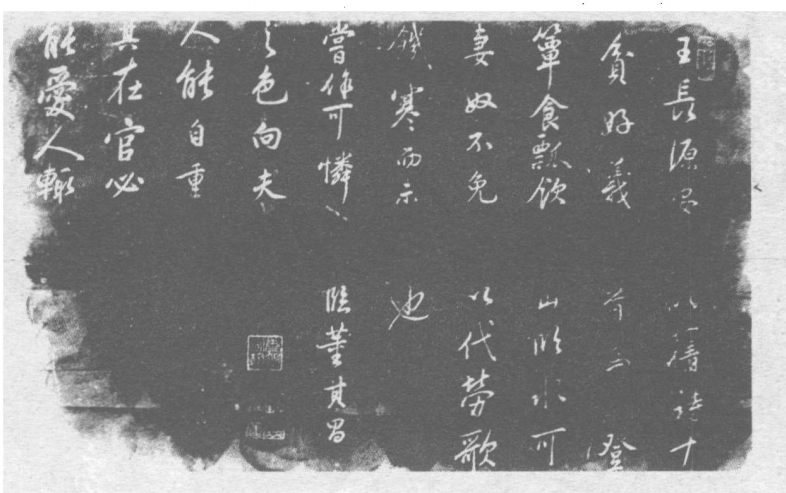 王長源
貧好義
簞食瓢飲
妻奴不免
饑寒而未
嘗作可憐
之色向夫
人能自重
其在官必
能愛人輒
以舊詩十
首 澄
山照水可
以代勞歌
也
臨董其昌